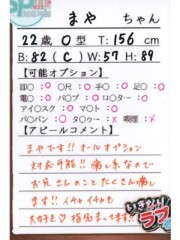 まや ちゃん
22歳 O型 T:156cm
B:82(C) W:57 H:89
【可能オプション】
即○:○ 尺○:○ 手○:○ 足○:○
電○:○ バ○ブ:○ ロ○ター:○
アイ○スク:○ オ○スト:○
パ○パン:○ タ○ゥー:× 喫煙:×
【アピールコメント】
まやです!! オールオプション
対応可能!! 癒し系なので
お兄さんのことたくさん癒し
ます!! イチャイチャも
大好き♡ 指名まってます!!